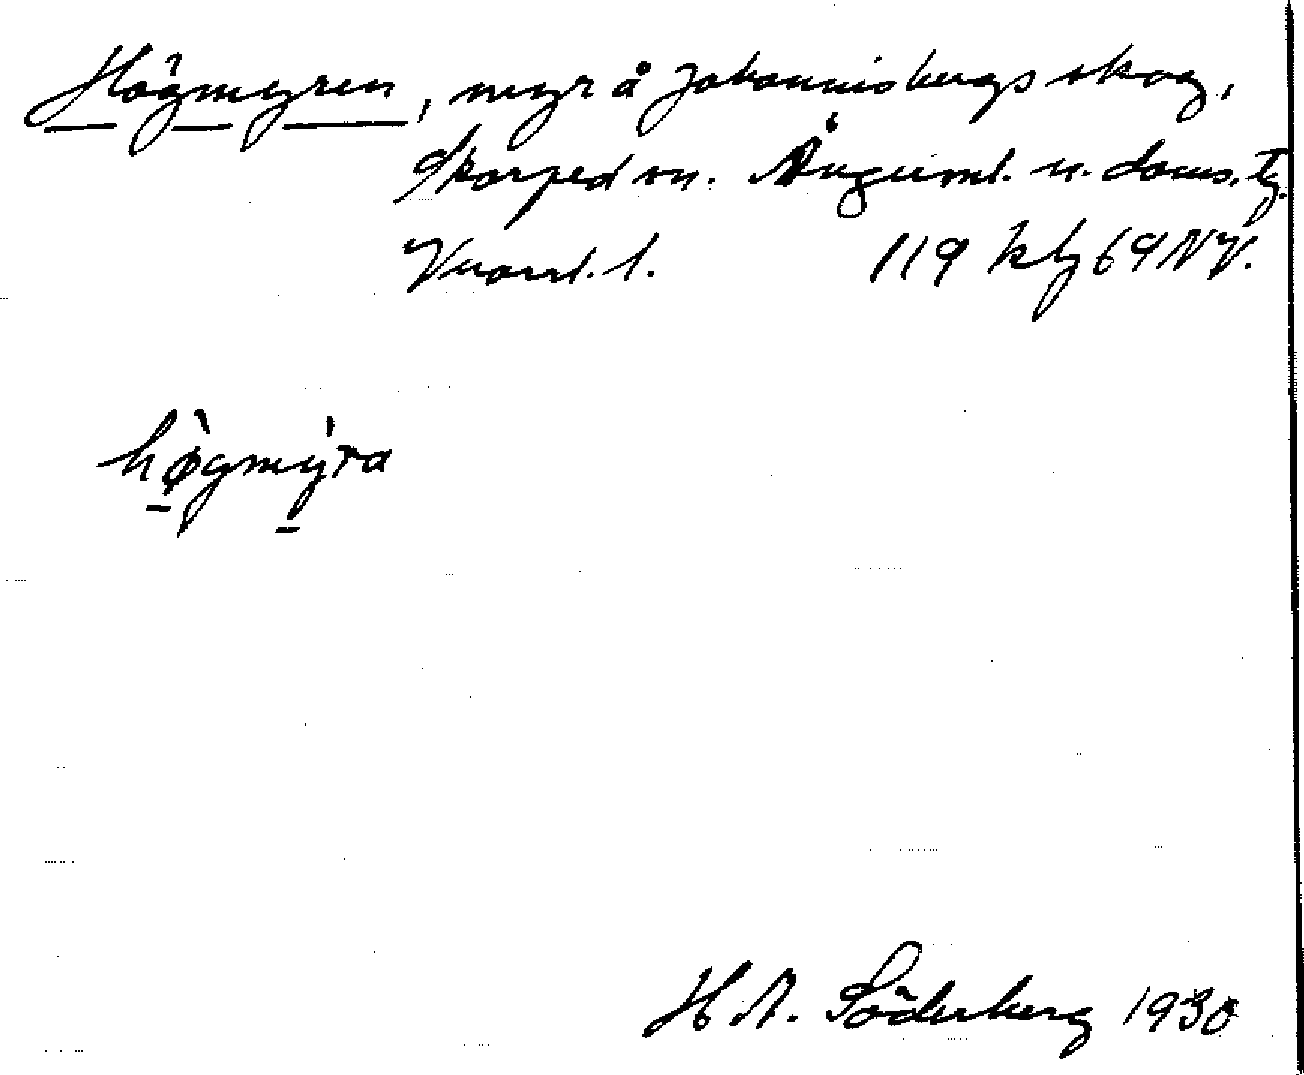 Högmyren, myr å Johannisbergs skog,
Skorped sn. Ångerml. n. doms. tg.
Vnorrl. l. 119 kbl 69 NV.
høgmýra
H. A. Söderberg 1930